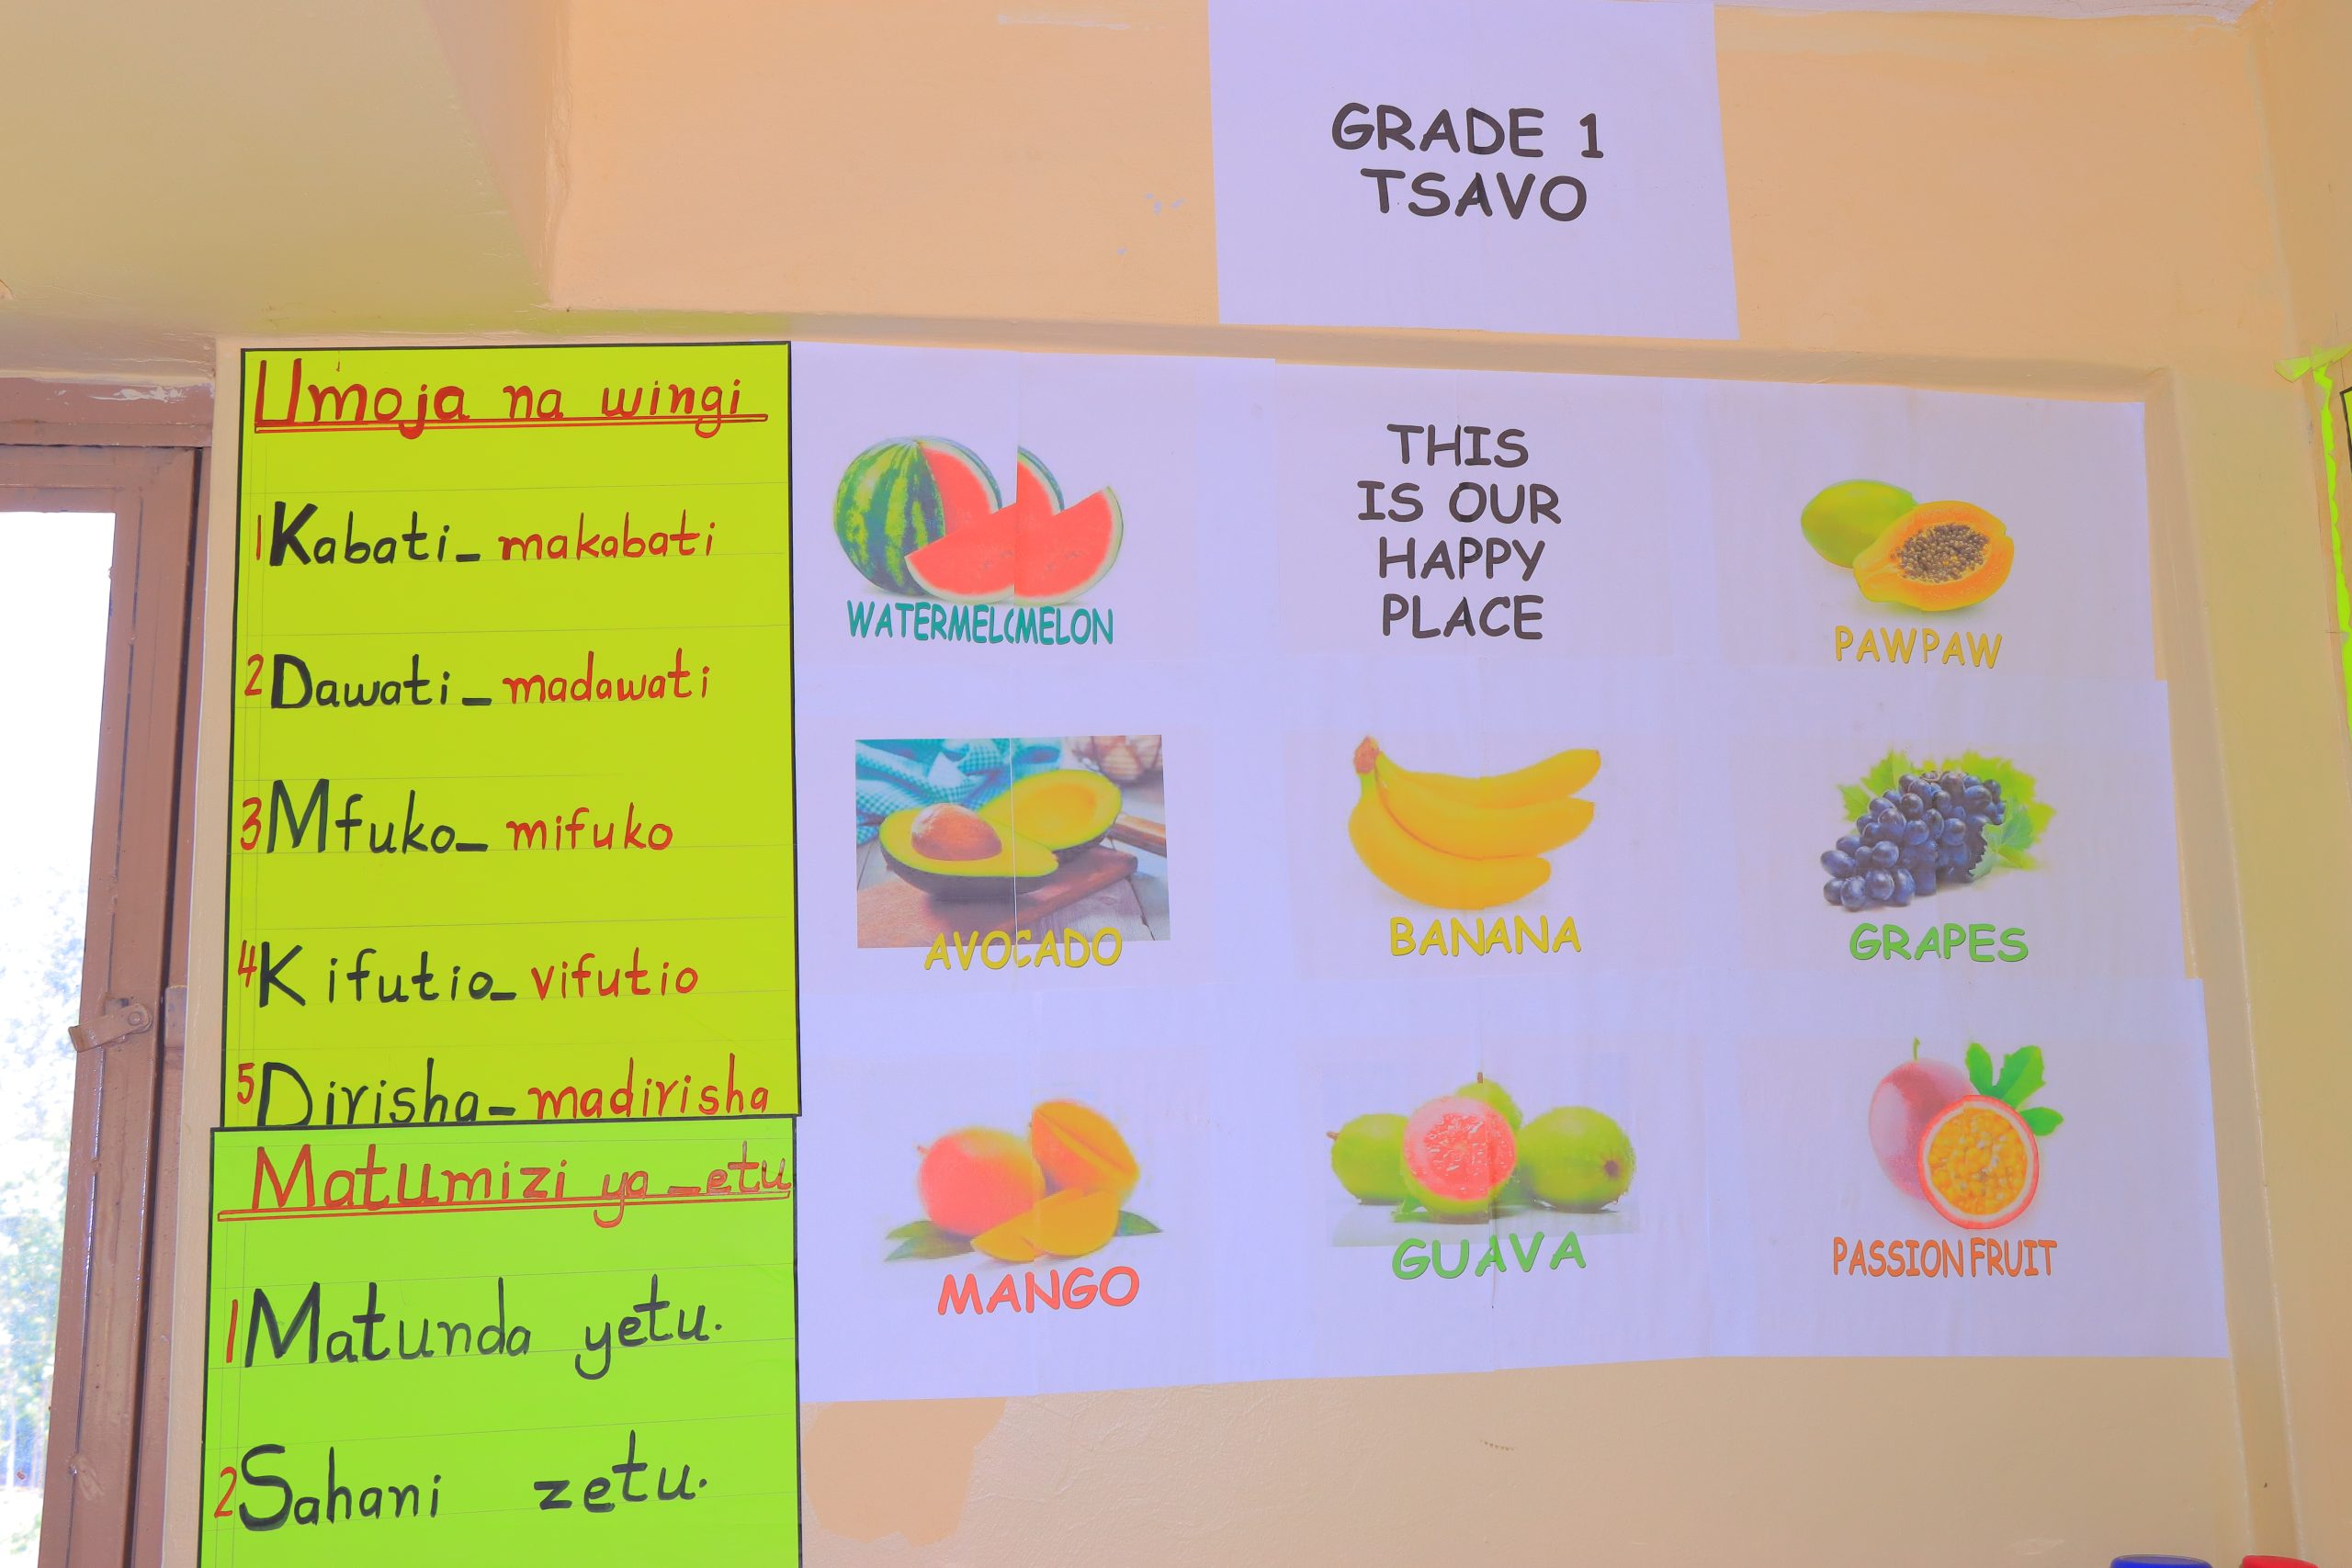 GRADE 1
TSAVO
Umoja na wingi
1 Kabati - makabati
2 Dawati - madawati
3 Mfuko - mifuko
4 Kifutio - vifutio
5 Dirisha - madirisha
Matumizi ya -etu
1 Matunda yetu.
2 Sahani zetu.
WATERMELCMELON
THIS
IS OUR
HAPPY
PLACE
PAWPAW
AVOCADO
BANANA
GRAPES
MANGO
GUAVA
PASSION FRUIT